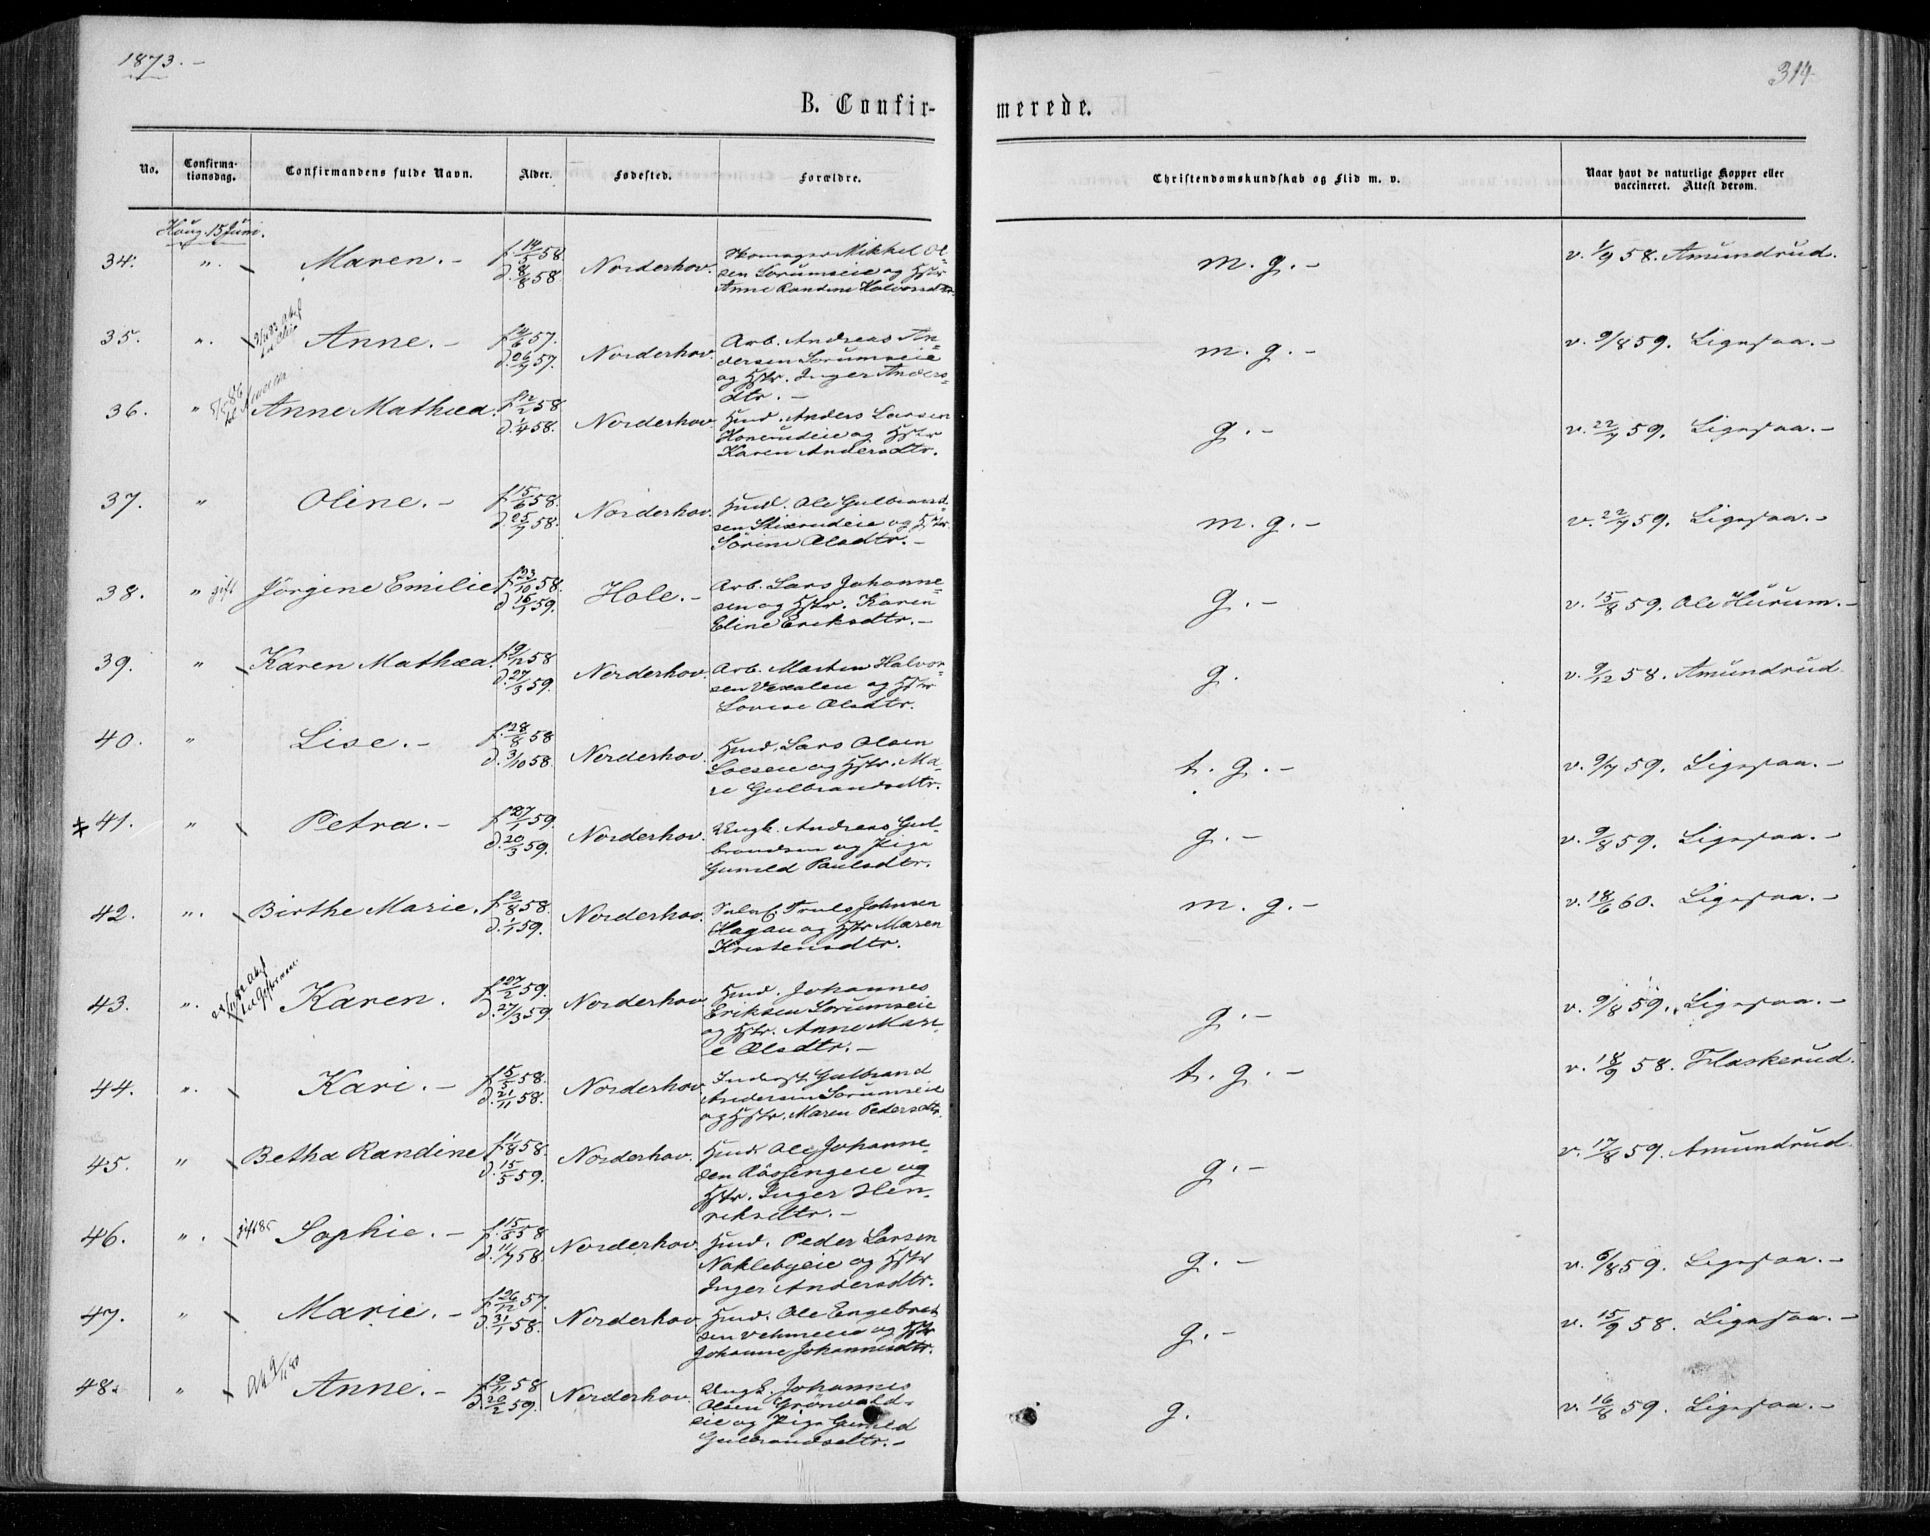 1873.-
314
B. Confir-
merede.
No.
Confirma-
tionsdag.
Confirmandens fulde Navn.
Alder.
Fødested.
Forældre.
Christendomskundskab og Flid m. v.
Naar havt de naturlige Kopper eller
vaccineret. Attest derom.
Haug. 15 Juni.
34. " Maren.- f. 14/5 58. d. 8/8 58. Norderhov. Skomager Mikkel Ol-
sen Sørumseie og Hstr
Anne Randine Halvorsdtr.
m. g.- v. 1/9 58. Amundrud.
35. " Anne.- 57. d. 26/7 57. Norderhov. Arb. Andreas An-
dersen Sørumseie
og Hstr. Inger Anders-
dtr.-
m. g.- v. 9/8 59. Ligesaa.-
36. " Anne Mathea. f. 12/2 58 d. 1/4 58. Norderhov. Hmd. Anders Larsen
og Hstr
Karen Andersdtr.
g.- v. 22/7 59. Ligesaa.-
37. " Oline.- f. 15/6 58. d. 25/7 58. Norderhov. Hmd. Ole Gulbrand-
sen og Hstr.
Sørine Olsdtr.-
m. g.- v. 22/7 59. Ligesaa.-
38. " gift Jørgine Emilie f. 23/10 58. d. 16/1 59. Hole.- Arb. Lars Johanne-
sen og Hstr. Karen
Eline Eriksdtr.-
g.- v. 15/8 59. Ole Hurum.-
39. " Karen Mathea. f. 9/12 58 d. 27/3 59. Norderhov. Arb. Morten Halvor-
sen og Hstr
Lovise Olsdtr.
g. v. 9/12 58. Amundrud.
40. " Lise.- f. 28/8 58 d. 3/10 58. Norderhov. Hmd. Lars Olsen
og Hstr. Ma-
rie Gulbrandsdtr.
t. g.- v. 9/7 59. Ligesaa.-
41. " Petra.- f. 27/1 59. d. 20/3 59. Norderhov. Ungk. Andreas Gul-
brandsen og Pige
Gunild Paulsdtr.
g.- v. 9/8 59. Ligesaa.-
42. " Birthe Marie. f. 2/8 58. d. 1/1 59. Norderhov. Selvf. Truls Johnsen
Hagan og Hstr Maren
Kristensdtr.
m. g.- v. 18/6 60. Ligesaa.-
43. " Karen. f. 27/2 59. d. 27/3 59 Norderhov. Hmd. Johannes
Eriksen Sørumseie
og Hstr. Anne Mari-
e Olsdtr.-
g.- v. 9/8 59. Ligesaa.-
44. " Kari.- f. 15/5 58. d. 21/11 58. Norderhov. Inderst Gulbrand
Andersen Sørumseie
og Hstr. Maren Pedersdtr.
t. g.- v. 18/9 58. Flaskerud.
45. " Betha Randine f. 1/8 58. d. 15/5 59. Norderhov. Hmd. Ole Johanne-
sen og
Hstr. Inger Hen-
riksdtr.-
g.- v. 17/8 59. Amundrud.
46. " gift 85 Sophie.- f. 15/5 58 d. 11/7 58. Norderhov. Hmd. Peder Larsen
Naklebyeie og Hstr
Inger Andersdtr.
g.- v. 6/8 59. Ligesaa.-
47. " Marie.- f. 26/12 57. d. 31/1 58. Norderhov. Hmd. Ole Engebret
sen Vehmeeie og Hstr
Johanne Johannesdtr.
g.- v. 15/9 58. Ligesaa.-
48. " Anne.- f. 19/11 58 d. 20/2 59. Norderhov. Ungk. Johannes
Olsen Grønvold-
eie og Pige Gunild
Gulbrandsdtr.-
g. v. 16/8 59. Ligesaa.-